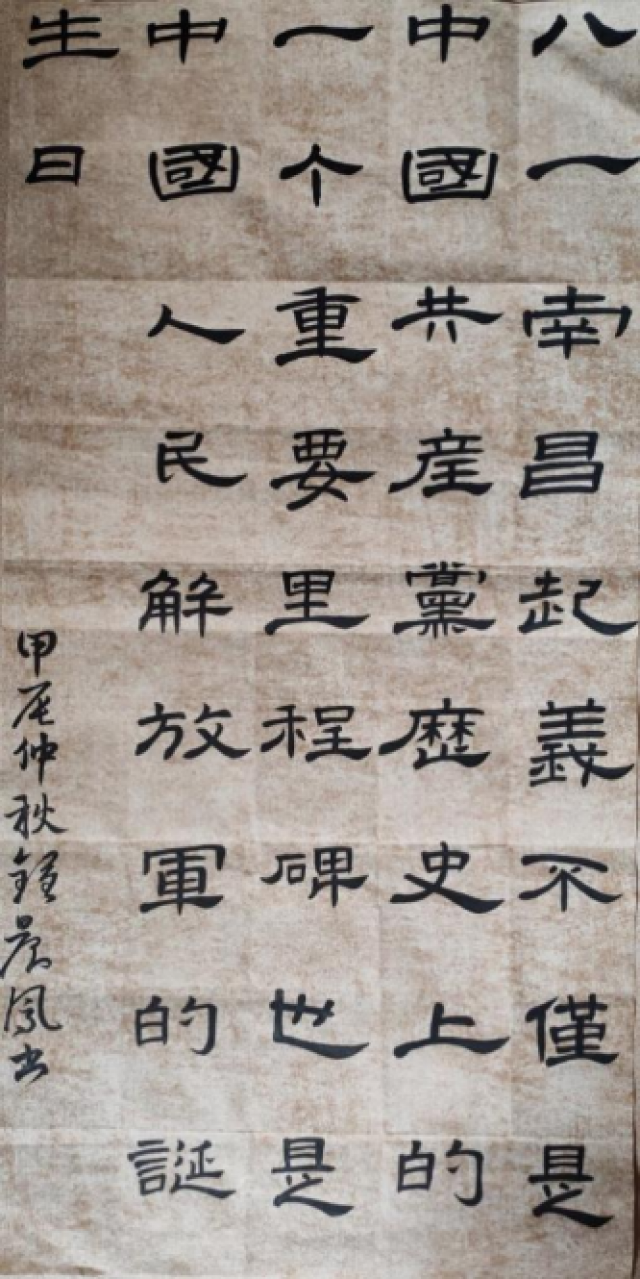 八一南昌起義不僅是
中國共産黨歷史上的
一个重要里程碑也是
中國人民解放軍的誕
生日
甲辰仲秋鳳书